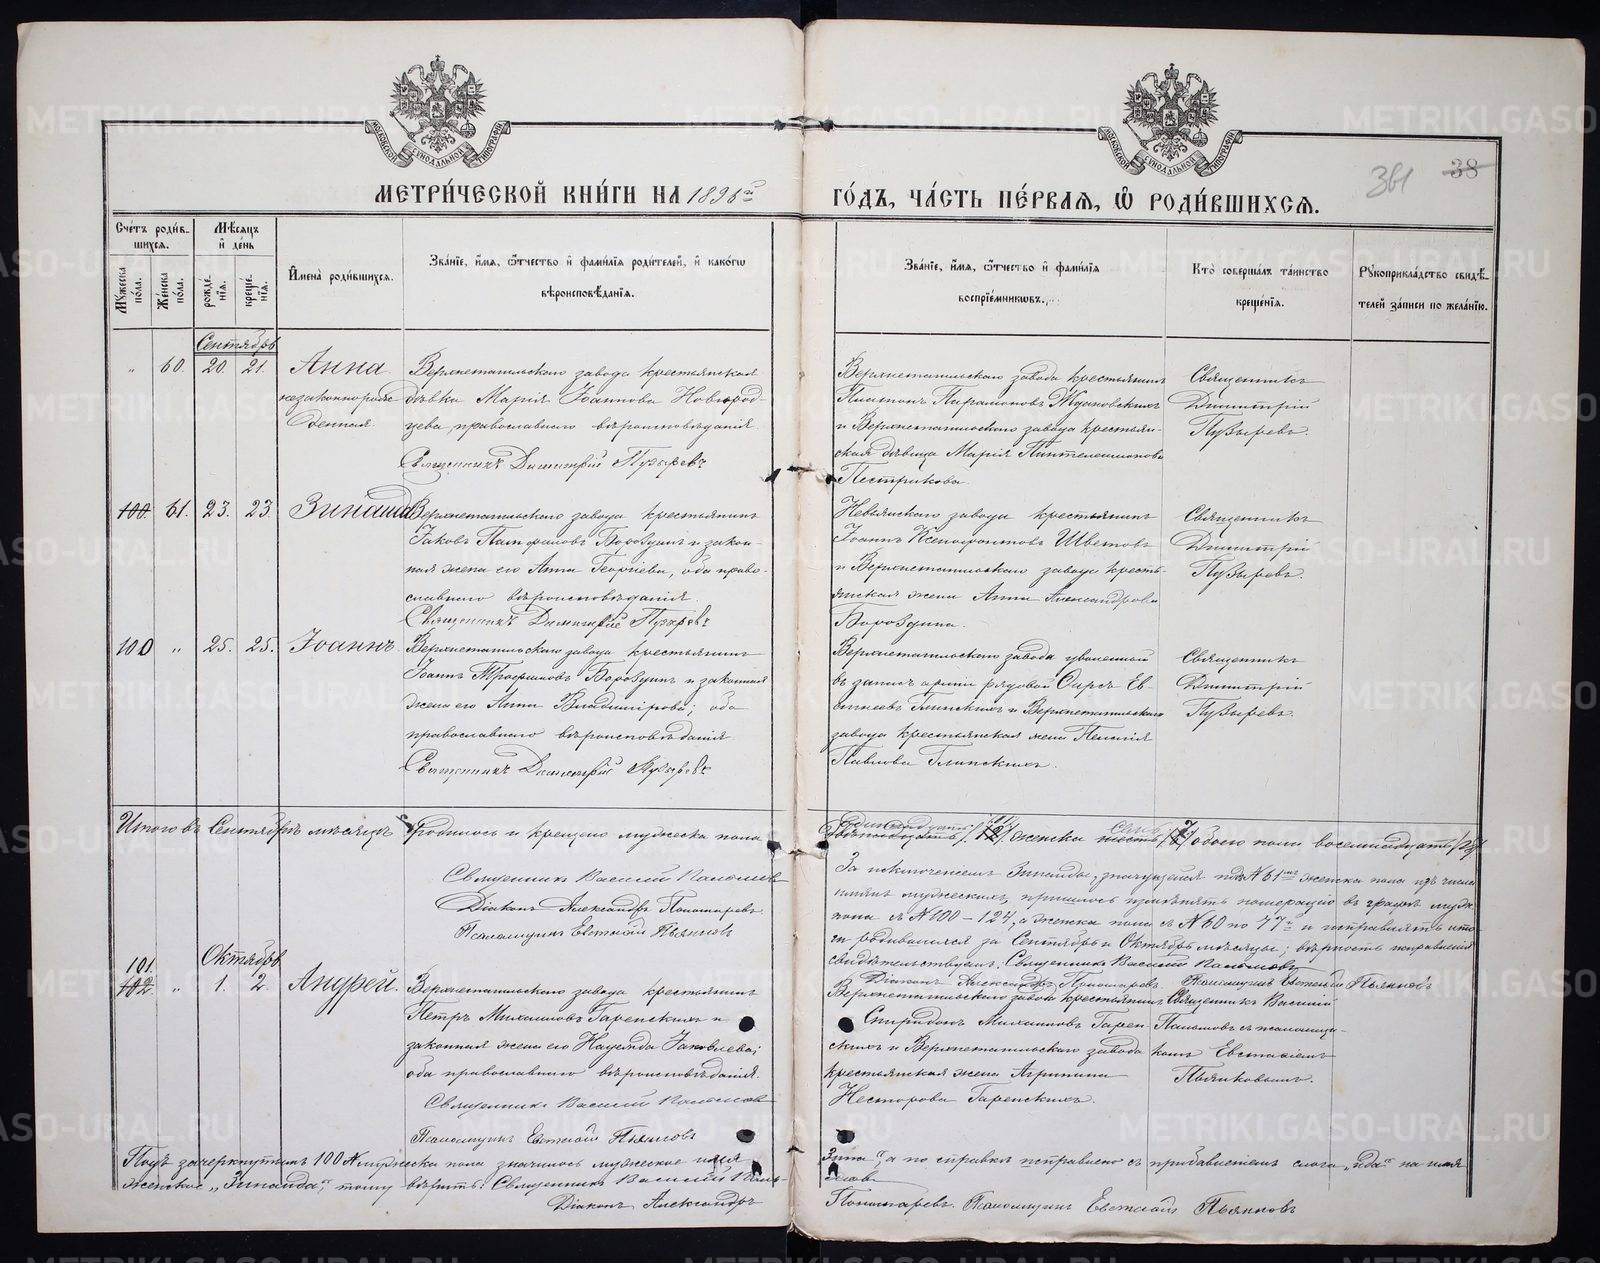 МОСКОВСКОЙ СѴНОДАЛЬНОЙ ТИПОГРАФІИ
МОСКОВСКОЙ СѴНОДАЛЬНОЙ ТИПОГРАФІИ
38
МЕТРИ́ЧЕСКОЙ КНИ́ГИ НА 1896й
ГО́ДЪ, ЧА́СТЬ ПЕ́РВАѦ, Ѡ҆ РОДИ́ВШИХСѦ.
Сче́тъ роди́в-
шихсѧ.
Мꙋ́жеска по́ла.
Же́нска по́ла.
Мѣ́сѧцъ и҆ де́нь
рожде́нїѧ.
креще́нїѧ.
И҆мена̀ роди́вшихсѧ.
Зва́нїе, и҆́мѧ, ѻ҆́тчество и҆ фами́лїѧ роди́телей, и҆ како́гѡ
вѣроисповѣ́данїѧ.
Зва́нїе, и҆́мѧ, ѻ҆́тчество и҆ фами́лїѧ
воспрїе́мникѡвъ.
Кто̀ соверша́лъ та́инство
креще́нїѧ.
Рꙋкоприкла́дство свидѣ́-
телей за́писи по жела́нїю.
Сентябрь
" 60. 20. 21. Анна
незаконнорож-
денная
Верхнетагильскаго завода крестьянская
дѣвка Марія Іоаннова Новгород-
цева, православнаго вѣроисповѣданія.
Священникъ Димитрій Пузыревъ
Верхнетагильскаго завода крестьянинъ
Платонъ Парамоновъ Ждановскихъ
и Верхнетагильскаго завода крестьян-
ская дѣвица Марія Пантелеимонова
Пестрикова.
Священникъ
Димитрій
Пузыревъ.
100. 61. 23. 23. Зинаида
Верхнетагильскаго завода крестьянинъ
Іаковъ Памфиловъ Бороздинъ и закон-
ная жена его Анна Георгіева, оба право-
славнаго вѣроисповѣданія.
Священникъ Димитрій Пузыревъ
Невьянскаго завода крестьянинъ
Іоаннъ Ксенофонтовъ Шветовъ
и Верхнетагильскаго завода кресть-
янская жена Анна Александрова
Бороздина.
Священникъ
Димитрій
Пузыревъ.
100 " 25. 25. Іоаннъ
Верхнетагильскаго завода крестьянинъ
Іоаннъ Трофимовъ Бороздинъ и законная
жена его Анна Владимірова; оба
православнаго вѣроисповѣданія.
Священникъ Димитрій Пузыревъ
Верхнетагильскаго завода уволенный
въ запасъ арміи рядовой
Глинскихъ и Верхнетагильскаго
завода крестьянская жена
Павлова Глинскихъ.
Священникъ
Димитрій
Пузыревъ.
Итого въ Сентябрѣ мѣсяцѣ родилось и крещено мужеска пола
женска шесть обоего пола восемнадцать /18/
Священникъ Василій
Діаконъ Александръ Пономаревъ.
Псаломщикъ Евстафій Пьянковъ
За исключеніемъ Зинаиды, значущейся подъ № 61мъ женска пола изъ числа
пришлось измѣнить нумерацію въ графѣ муж.
пола съ № 100 – 124, а женска пола съ № 60 по 77й и исправить ито-
ги родившихся за Сентябрь и Октябрь мѣсяцы; вѣрность исправленія
свидѣтельствуемъ: Священникъ Василій
Діаконъ Александръ Пономаревъ. Псаломщикъ Евстафій Пьянковъ
Октябрь
101.
102. " 1. 2. Андрей.
Верхнетагильскаго завода крестьянинъ
Петръ Михаиловъ Гаренскихъ и
законная жена его Надежда Іаковлева;
оба православнаго вѣроисповѣданія.
Священникъ Василій
Псаломщикъ Евстафій Пьянковъ
Верхнетагильскаго завода крестьянинъ
Спиридонъ Михаиловъ Гарен-
скихъ и Верхнетагильскаго завода
крестьянская жена Агрипина
Несторова Гаренскихъ.
Священникъ Василій
съ псаломщи-
комъ Евстафіемъ
Пьянковымъ.
Подъ зачеркнутымъ 100 № мужеска пола значилось мужеское имя
"Зина", а по справкѣ исправлено съ прибавленіемъ слога "ида" на имя
женское "Зинаида", тому вѣрить: Священникъ Василій
Діаконъ Александръ
Пономаревъ. Псаломщикъ Евстафій Пьянковъ
METRIKI.GASO-URAL.RU